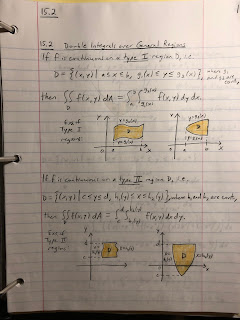 15.2
15.2 Double Integrals over General Regions
If f is continuous on a type I region D, i.e.
D = {(x,y) | a ≤ x ≤ b, g₁(x) ≤ y ≤ g₂(x)}, where g₁
and g₂ are conts,
then ∬_D f(x,y) dA = ∫_a^b ∫_{g₁(x)}^{g₂(x)} f(x,y) dy dx.
Exs of
Type I
regions
y y=g₂(x) D y=g₁(x) a b x
y y=g₂(x) D y=g₁(x) a b x
If f is continuous on a type II region D, i.e.,
D = {(x,y) | c ≤ y ≤ d, h₁(y) ≤ x ≤ h₂(y)}, where h₁ and h₂ are conts,
then ∬_D f(x,y) dA = ∫_c^d ∫_{h₁(y)}^{h₂(y)} f(x,y) dx dy.
Exs of
Type II
regions
y d D c x
y d D c x